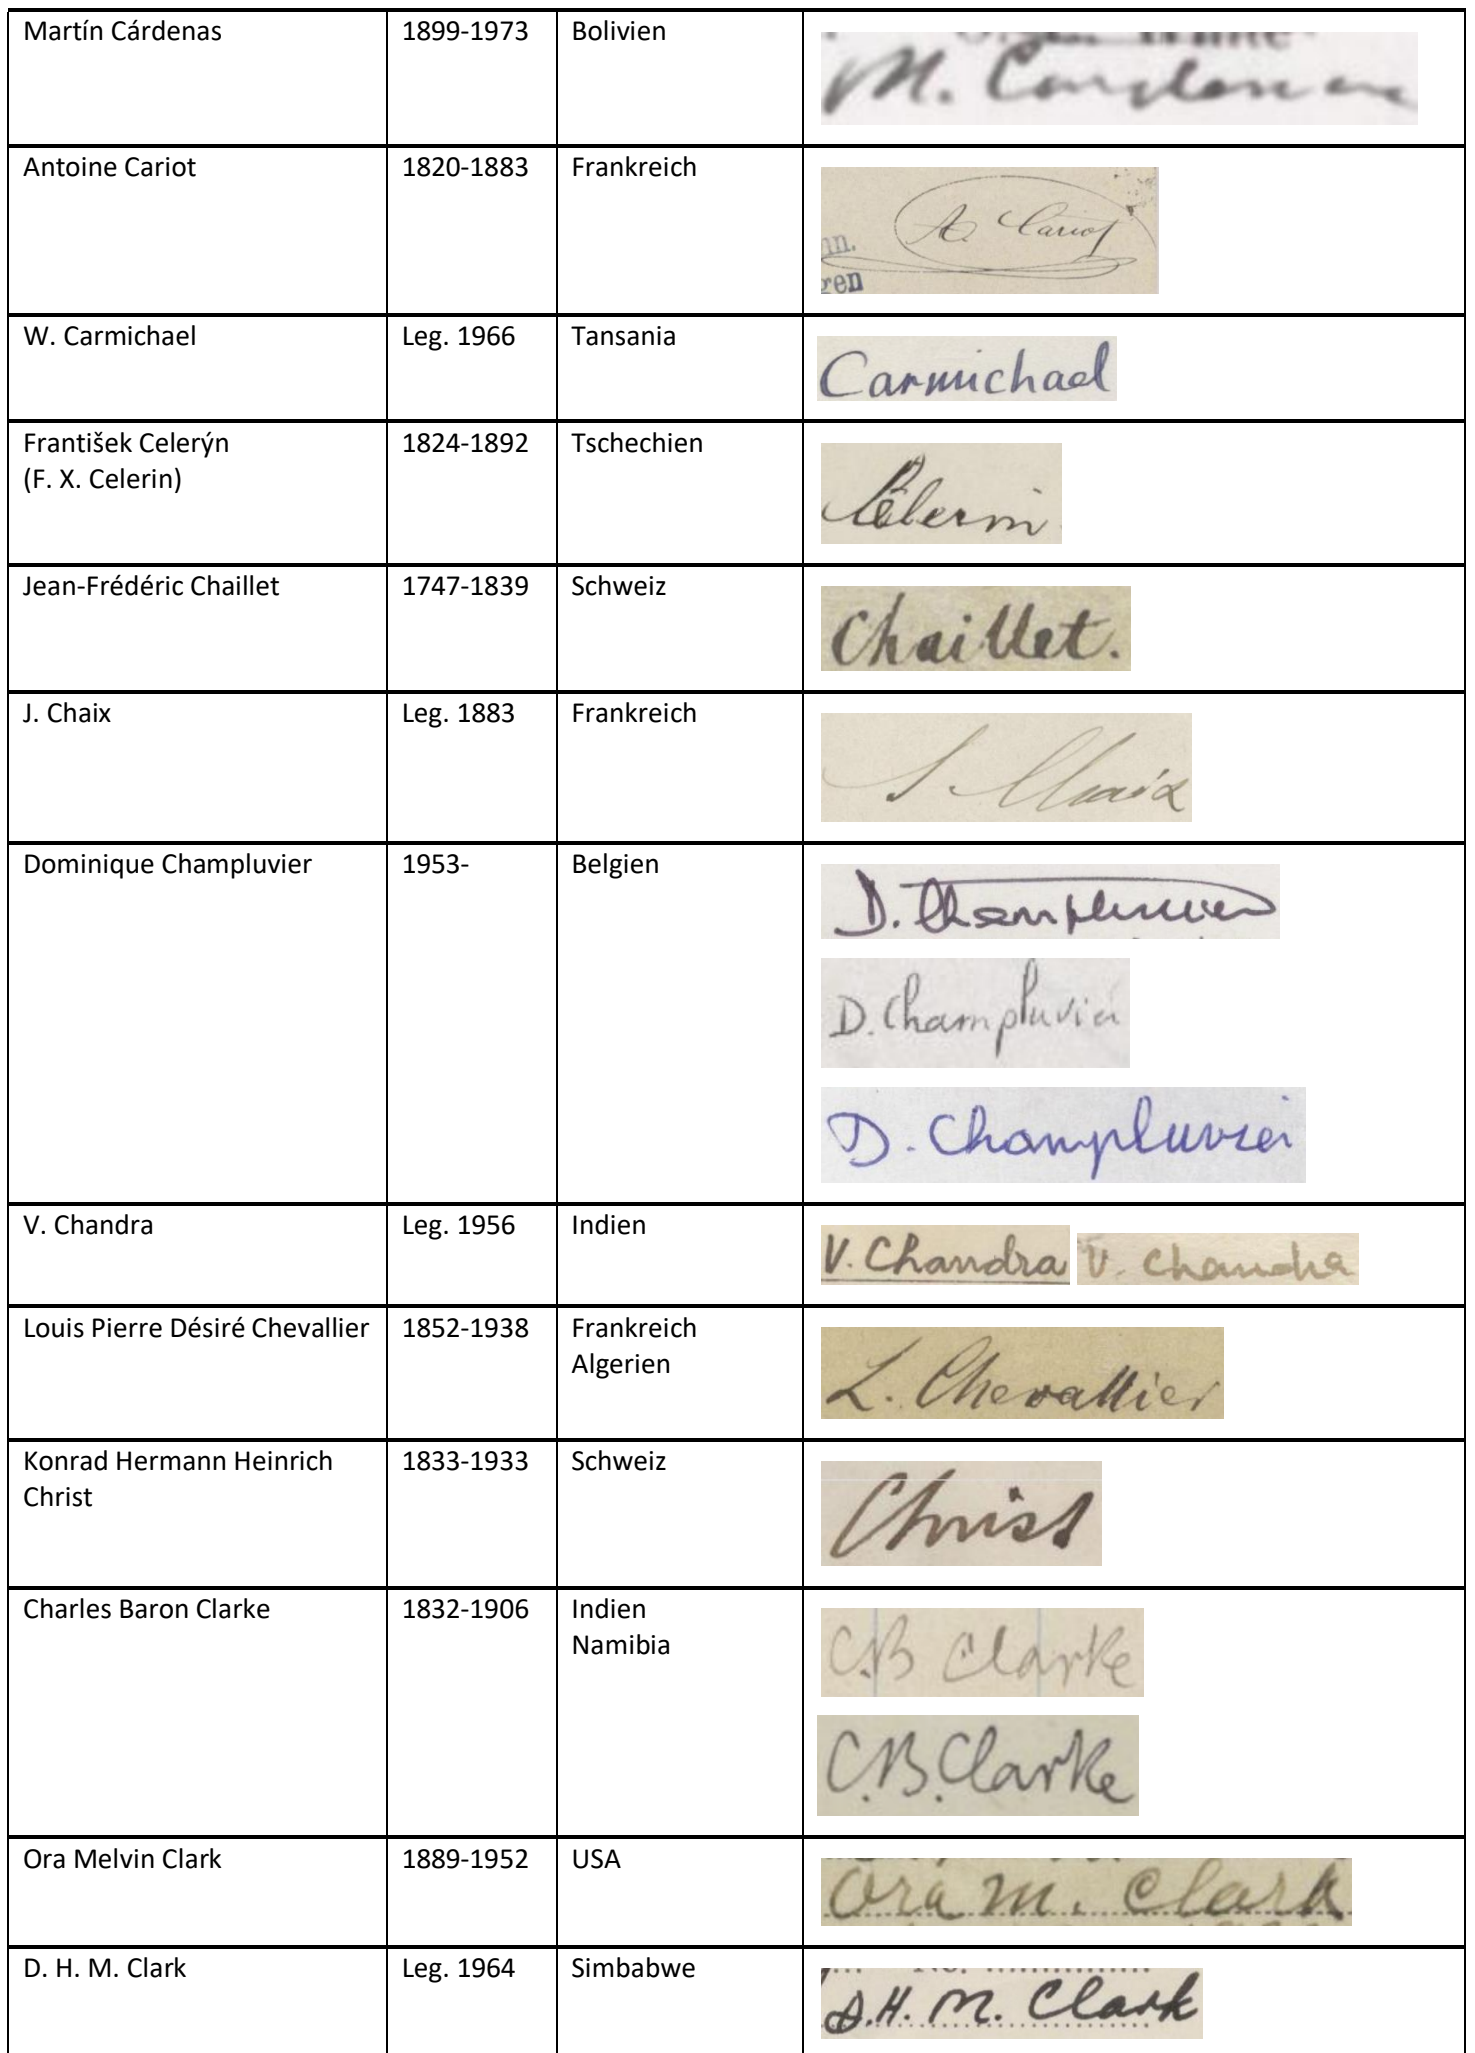 Martín Cárdenas 1899-1973 Bolivien M. Cardenas
Antoine Cariot 1820-1883 Frankreich A. Cariot
nn.
gen
W. Carmichael Leg. 1966 Tansania Carmichael
František Celerýn 1824-1892 Tschechien Celerin
(F. X. Celerin)
Jean-Frédéric Chaillet 1747-1839 Schweiz Chaillet.
J. Chaix Leg. 1883 Frankreich J. Chaix
Dominique Champluvier 1953- Belgien D. Champluvier
D. Champluvier
D. Champluvier
V. Chandra Leg. 1956 Indien V. Chandra V. Chandra
Louis Pierre Désiré Chevallier 1852-1938 Frankreich L. Chevallier
Algerien
Konrad Hermann Heinrich 1833-1933 Schweiz Christ
Christ
Charles Baron Clarke 1832-1906 Indien C.B Clarke
Namibia
C.B. Clarke
Ora Melvin Clark 1889-1952 USA Ora M. Clark
D. H. M. Clark Leg. 1964 Simbabwe D.H. M. Clark